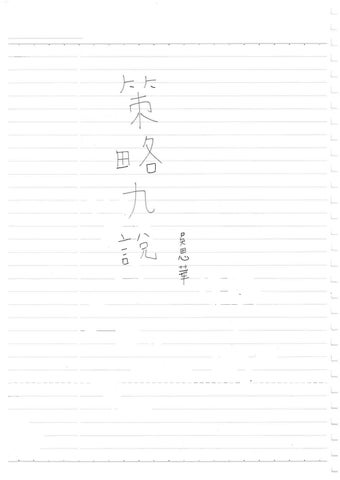 策略九說
吳思華